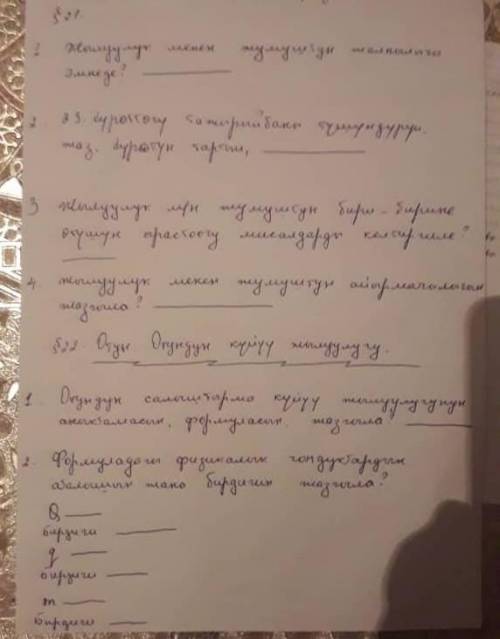 § 21.
1 Жылуулук менен жумуштун жалпылыгы
эмнеде?
2. 23. сүрөттөгү тажрыйбаны түшүндүрүп
жаз. Сүрөтүн тартып,
3 Жылуулук мн жумуштун бири-бирине
өтүшүн практикадагы мисалдарды келтиргиле?
4. Жылуулук менен жумуштун айырмачылыгын
жазгыла?
§22. Отун. Отундун күйүү жылуулугу.
1. Отундун салыштырма күйүү жылуулугунун
аныктамасын, формуласын жазгыла?
2. Формуладагы физикалык чоңдуктардын
аталышын жана бирдигин жазгыла?
Q
бирдиги
q
бирдиги
m
бирдиги